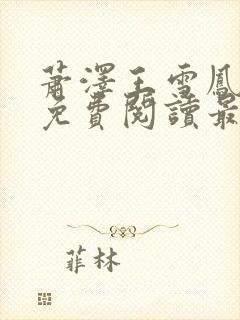 蕭澤王雪鳳
免費閱讀最
菲林